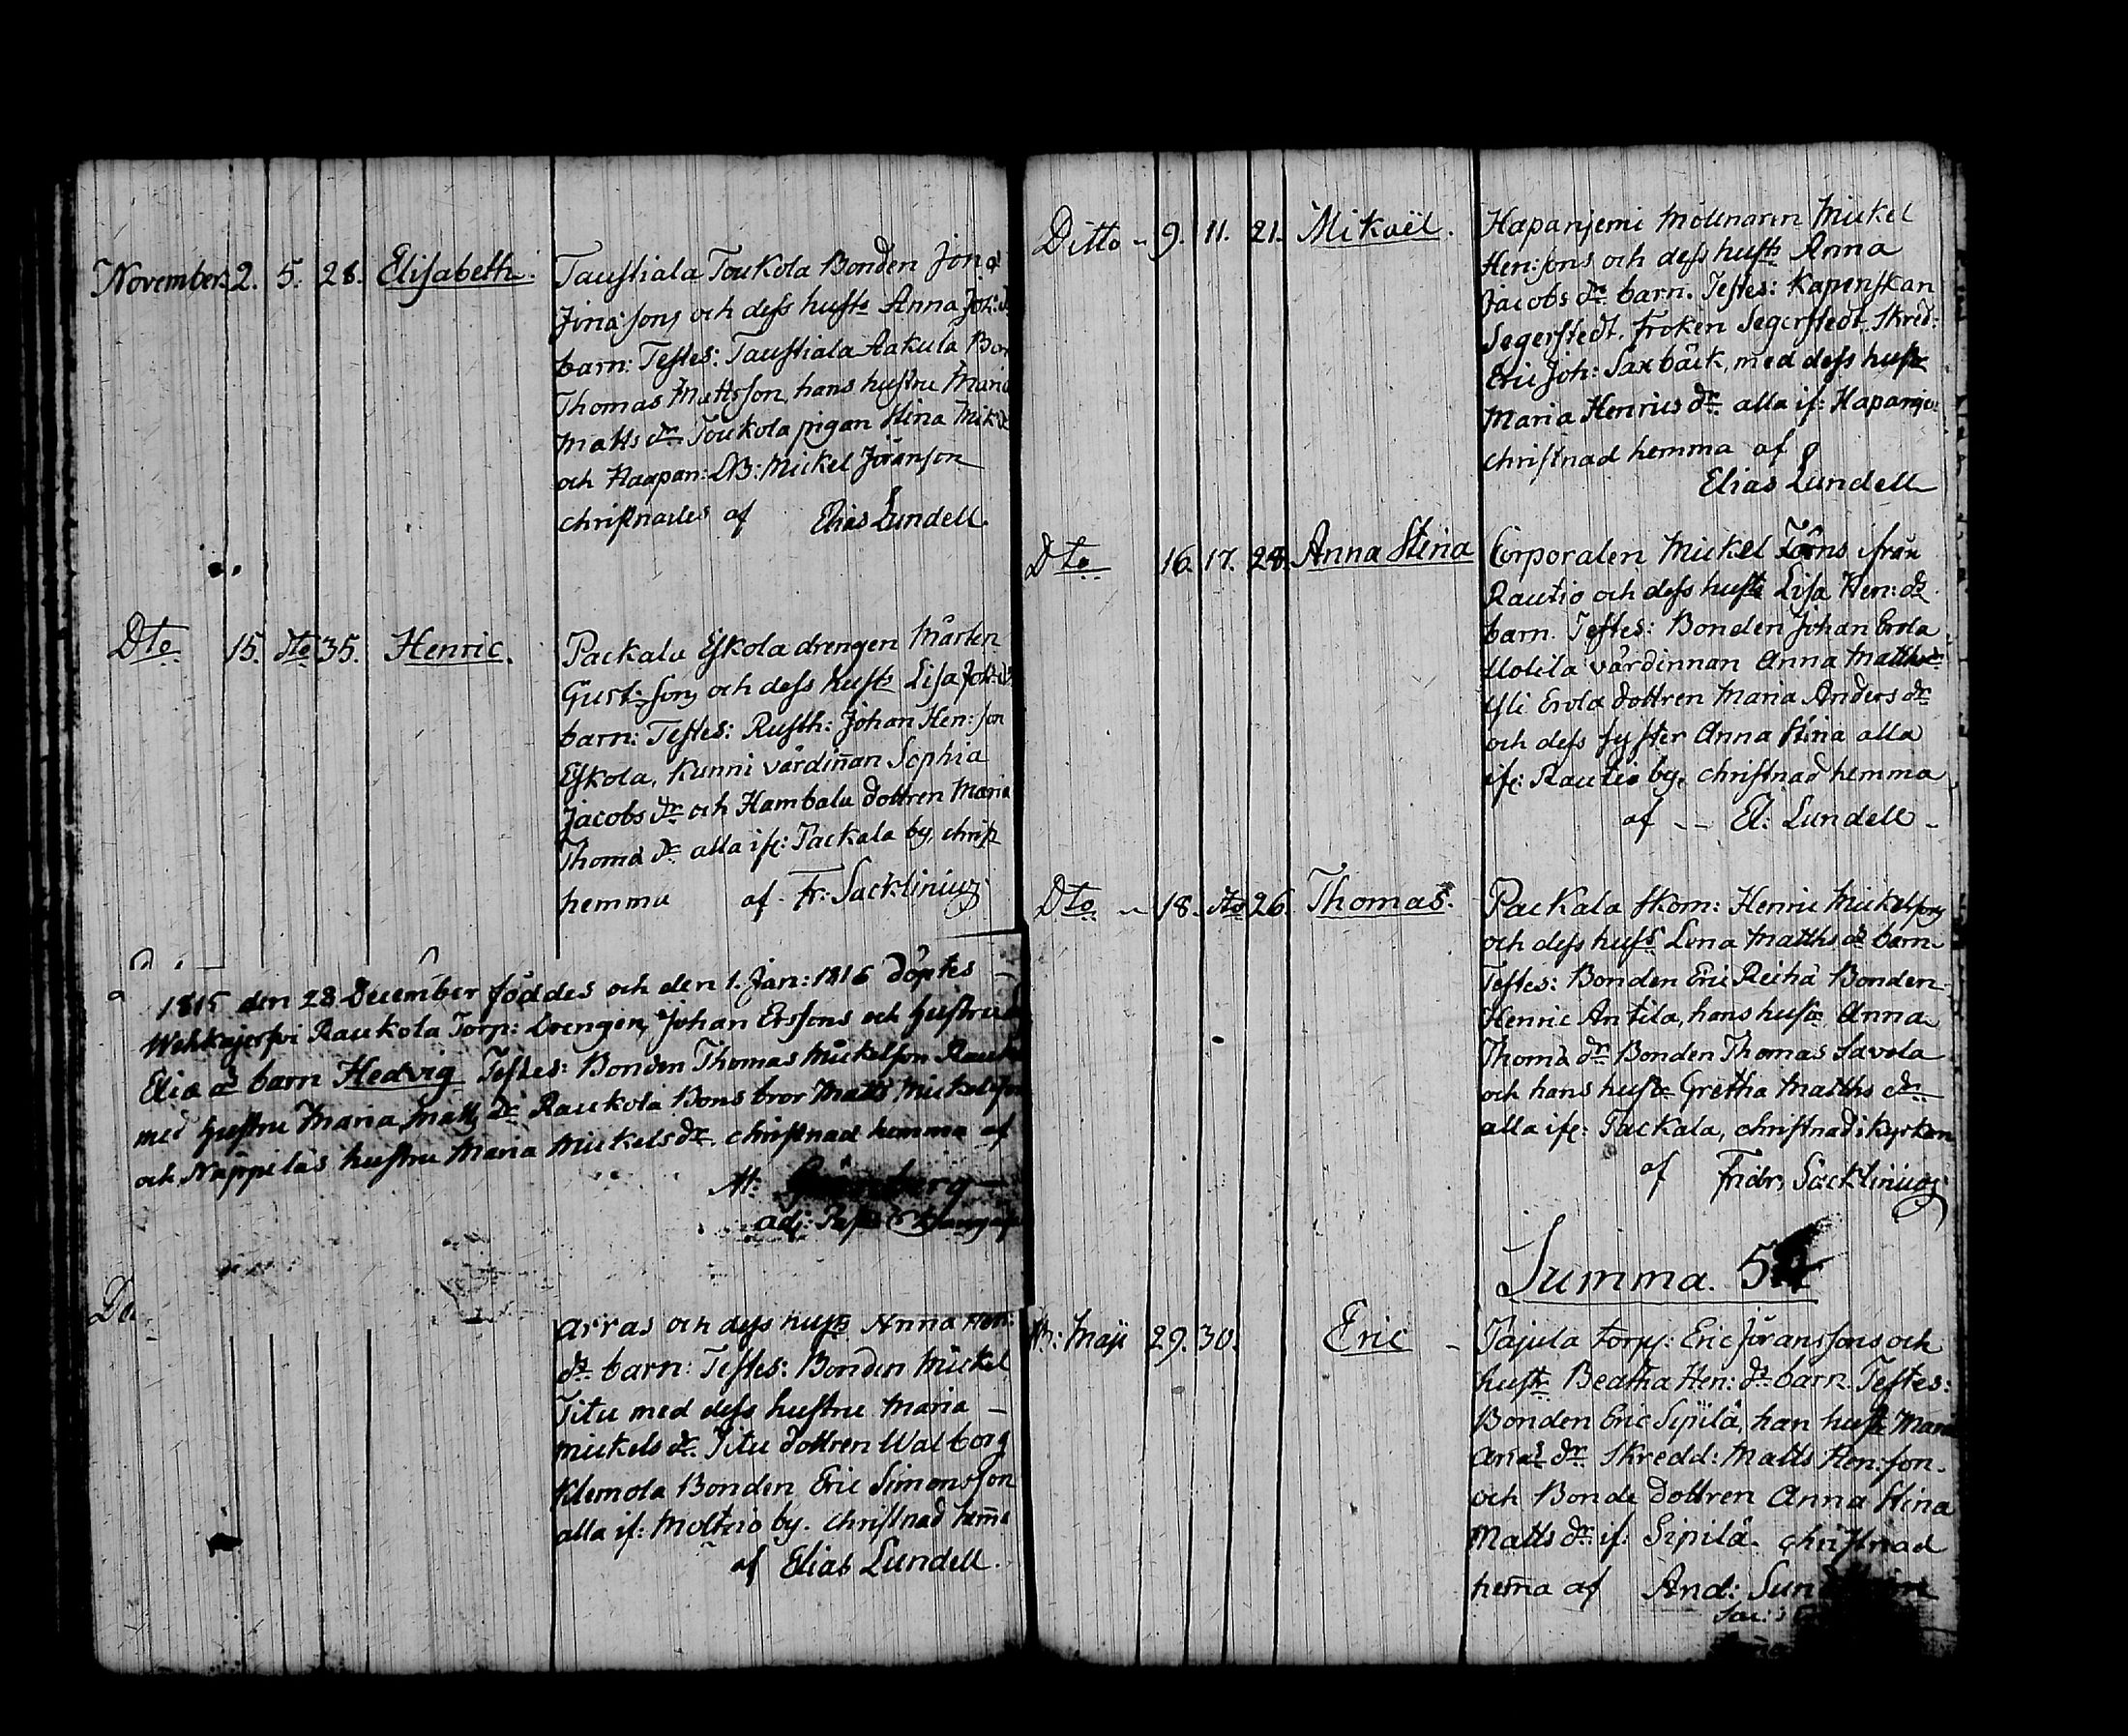 November. 2. 5. 28. Elisabeth. Taustiala Toukola Bonden
och dess hust: Anna Joh:
barn: Testes: Taustiala Aakula
Thomas Mattsson, hans hustru Maria
Matts dr Toukola pigan Stina Mik
och Haapan: DB: Mickel Jöranson
christnades af Elias Lundell.
Dto 15. dto 35. Henric. Packala Eskola drengen Mårten
Gust: sons och dess hustr Lisa Joh:
barn: Testes: Rusth: Johan Hen: son
Eskola, Kunni värdinñan Sophia
Jacobs dr och Hambala dottren Maria
Thomä dr alla ifr: Packala by, christ
hemma af Fr: Sacklinius
1815 den 28 December föddes och den 1. Jan: 1816 döptes
Wehkajerfvi Raukola Torp: Drengen, Johan Erssons och hustru
barn Hedvig Testes: Bonden Thomas Mickelson
med hustru Maria Matts dr Raukola Bons bror Matts Mickelsson
och Näppiläs hustru Maria Mickels dr christnad hemma af
adj:
Do
arras och dess hustr Anna Hen:
dr barn: Testes: Bonden Mickel
Titu med dess hustru Maria –
Mickels dr Titu dottren Walborg
Klemola Bonden Eric Simonsson
alla if: Moltzio by. christnad hem̃a
af Elias Lundell.
Ditto – 9. 11. 21. Mikaël. Hapanjemi Mölnaren Mickel
Hen: sons och dess hustr Anna
Jacobs dr barn. Testes: Kapenskan
Segerstedt. Fröken Segerstedt. Skred:
Eric Joh: Saxbäck, med dess hustr
Maria Henrics dr alla if: Hapange:
christnad hemma af
Elias Lundell
Dto 16. 17. 28. Anna Stina Corporalen Mickel Törns ifrån
Rautio och dess hustr Lisa Hen: dr
barn. Testes: Bonden Johan Erola
Uotila värdinnan Anna Matths dr
Yli Erola dottren Maria Anders dr
och dess syster Anna Stina alla
ifr: Rautio by, christnad hemma
af – – El: Lundell –
Dto – 18. dto 26. Thomas. Packala skom: Henric Mickelsons
och dess hustr Lena Matths dr barn
Testes: Bonden Eric Reihä Bonden
Henric Antila, hans hustr Anna
Thomä dr Bonden Thomas Savola
och hans hustr Gretha Matths dr
alla ifr: Packala, christnad i kyrkan
af Fridr, Sacklinius
Summa. 54
Maji 29. 30. Eric – Pajula torp: Eric Jöranssons och
hustr Beatha Hen: dr barn. Testes:
Bonden Eric Sipilä, han hustr Maria
dr Skredd: Matts Hen: son.
och Bonde dottren Anna Stina
Matts dr if: Sipilä. christnad
hem̃a af And: